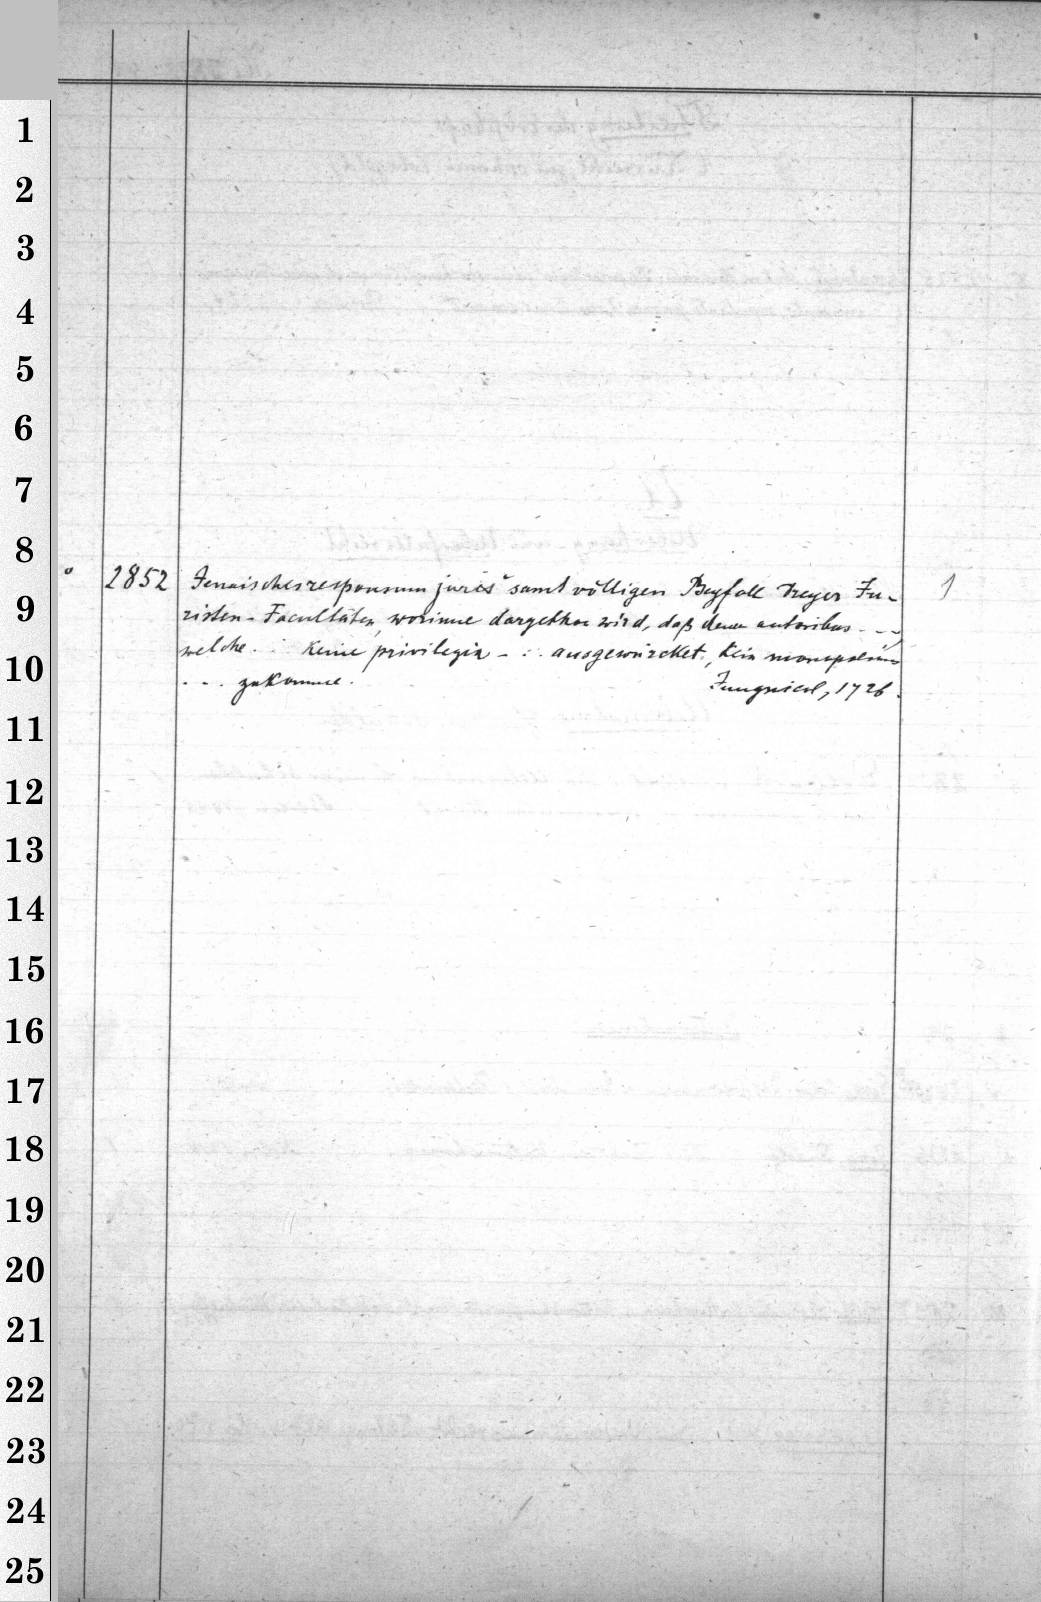 1
2
3
4
5
6
7
8
o 2852 Jenaisches responsum juris samt völligen Beyfall dreyer Ju- 1
9
risten-Facultäten, worinne dargethan wird, daß denen autoribus ...
10
welche ... keine privilegia ... ausgewürcket, kein monopolium
... zukomme. Jungnicol, 1726.
11
12
13
14
15
16
17
18
19
20
21
22
23
24
25